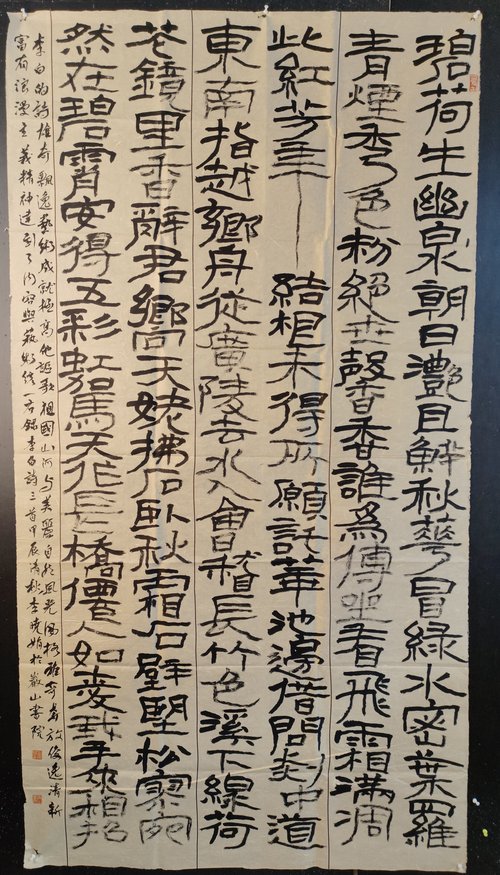 碧荷生幽泉朝日灧且鮮秋花冒綠水密葉羅
青煙秀色粉絕世馨香誰爲傳坐看飛霜滿凋
此紅芳年結根未得所願託華池邊借問剡中道
東南指越鄉舟從廣陵去水入會稽長竹色溪下綠荷
花鏡里香辭君嚮天姥拂石臥秋霜石壁望松寥宛
然在碧霄安得五彩虹駕天作長橋僊人如愛我手來相招
李白的詩雄奇飄逸藝術成就極高他謳歌祖國山河與美麗自然風光風格雄奇豪放俊逸清新
富有浪漫主義精神達到了內容與藝術統一右錄李白詩三首甲辰清秋李曉娟於山書院